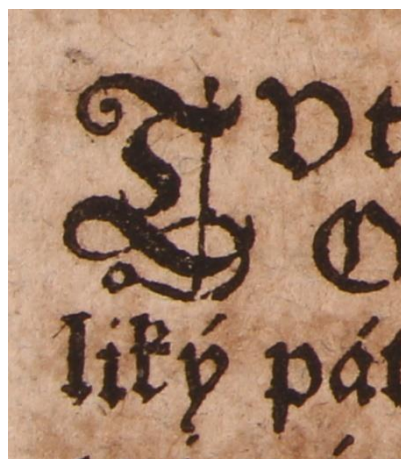 TVt
O
liký pát